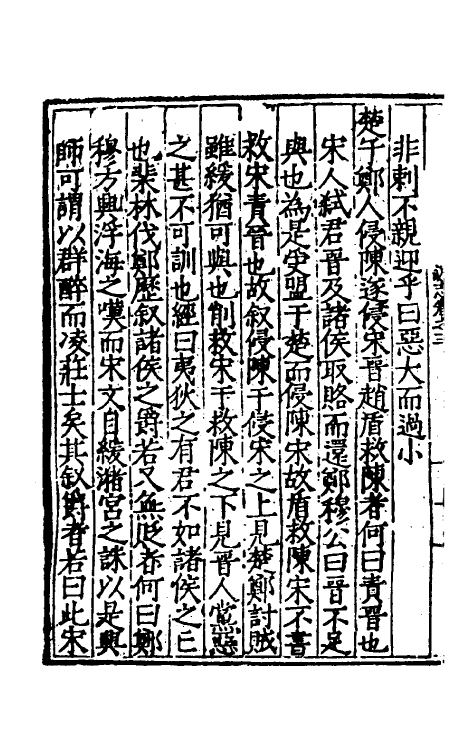 非刺不親迎乎曰惡大而過小
楚子鄭人侵陳遂侵宋晉趙盾救陳者何曰責晉也
宋人弑君晉及諸侯取賂而還鄭穆公曰晉不足
與也為是受盟于楚而侵陳宋故盾救陳宋不書
救宋責晉也故叙侵陳于侵宋之上見楚鄭討賊
雖緩猶可與也削救宋于救陳之下見晉人黨惡
之甚不可訓也經曰夷狄之有君不如諸侯之亡
也棐林伐鄭歷叙諸侯之爵若又無貶者何曰鄭
穆方興浮海之嘆而宋文自緩瀦宮之誅以是興
師可謂以群醉而凌莊士矣其叙爵者若曰此宋